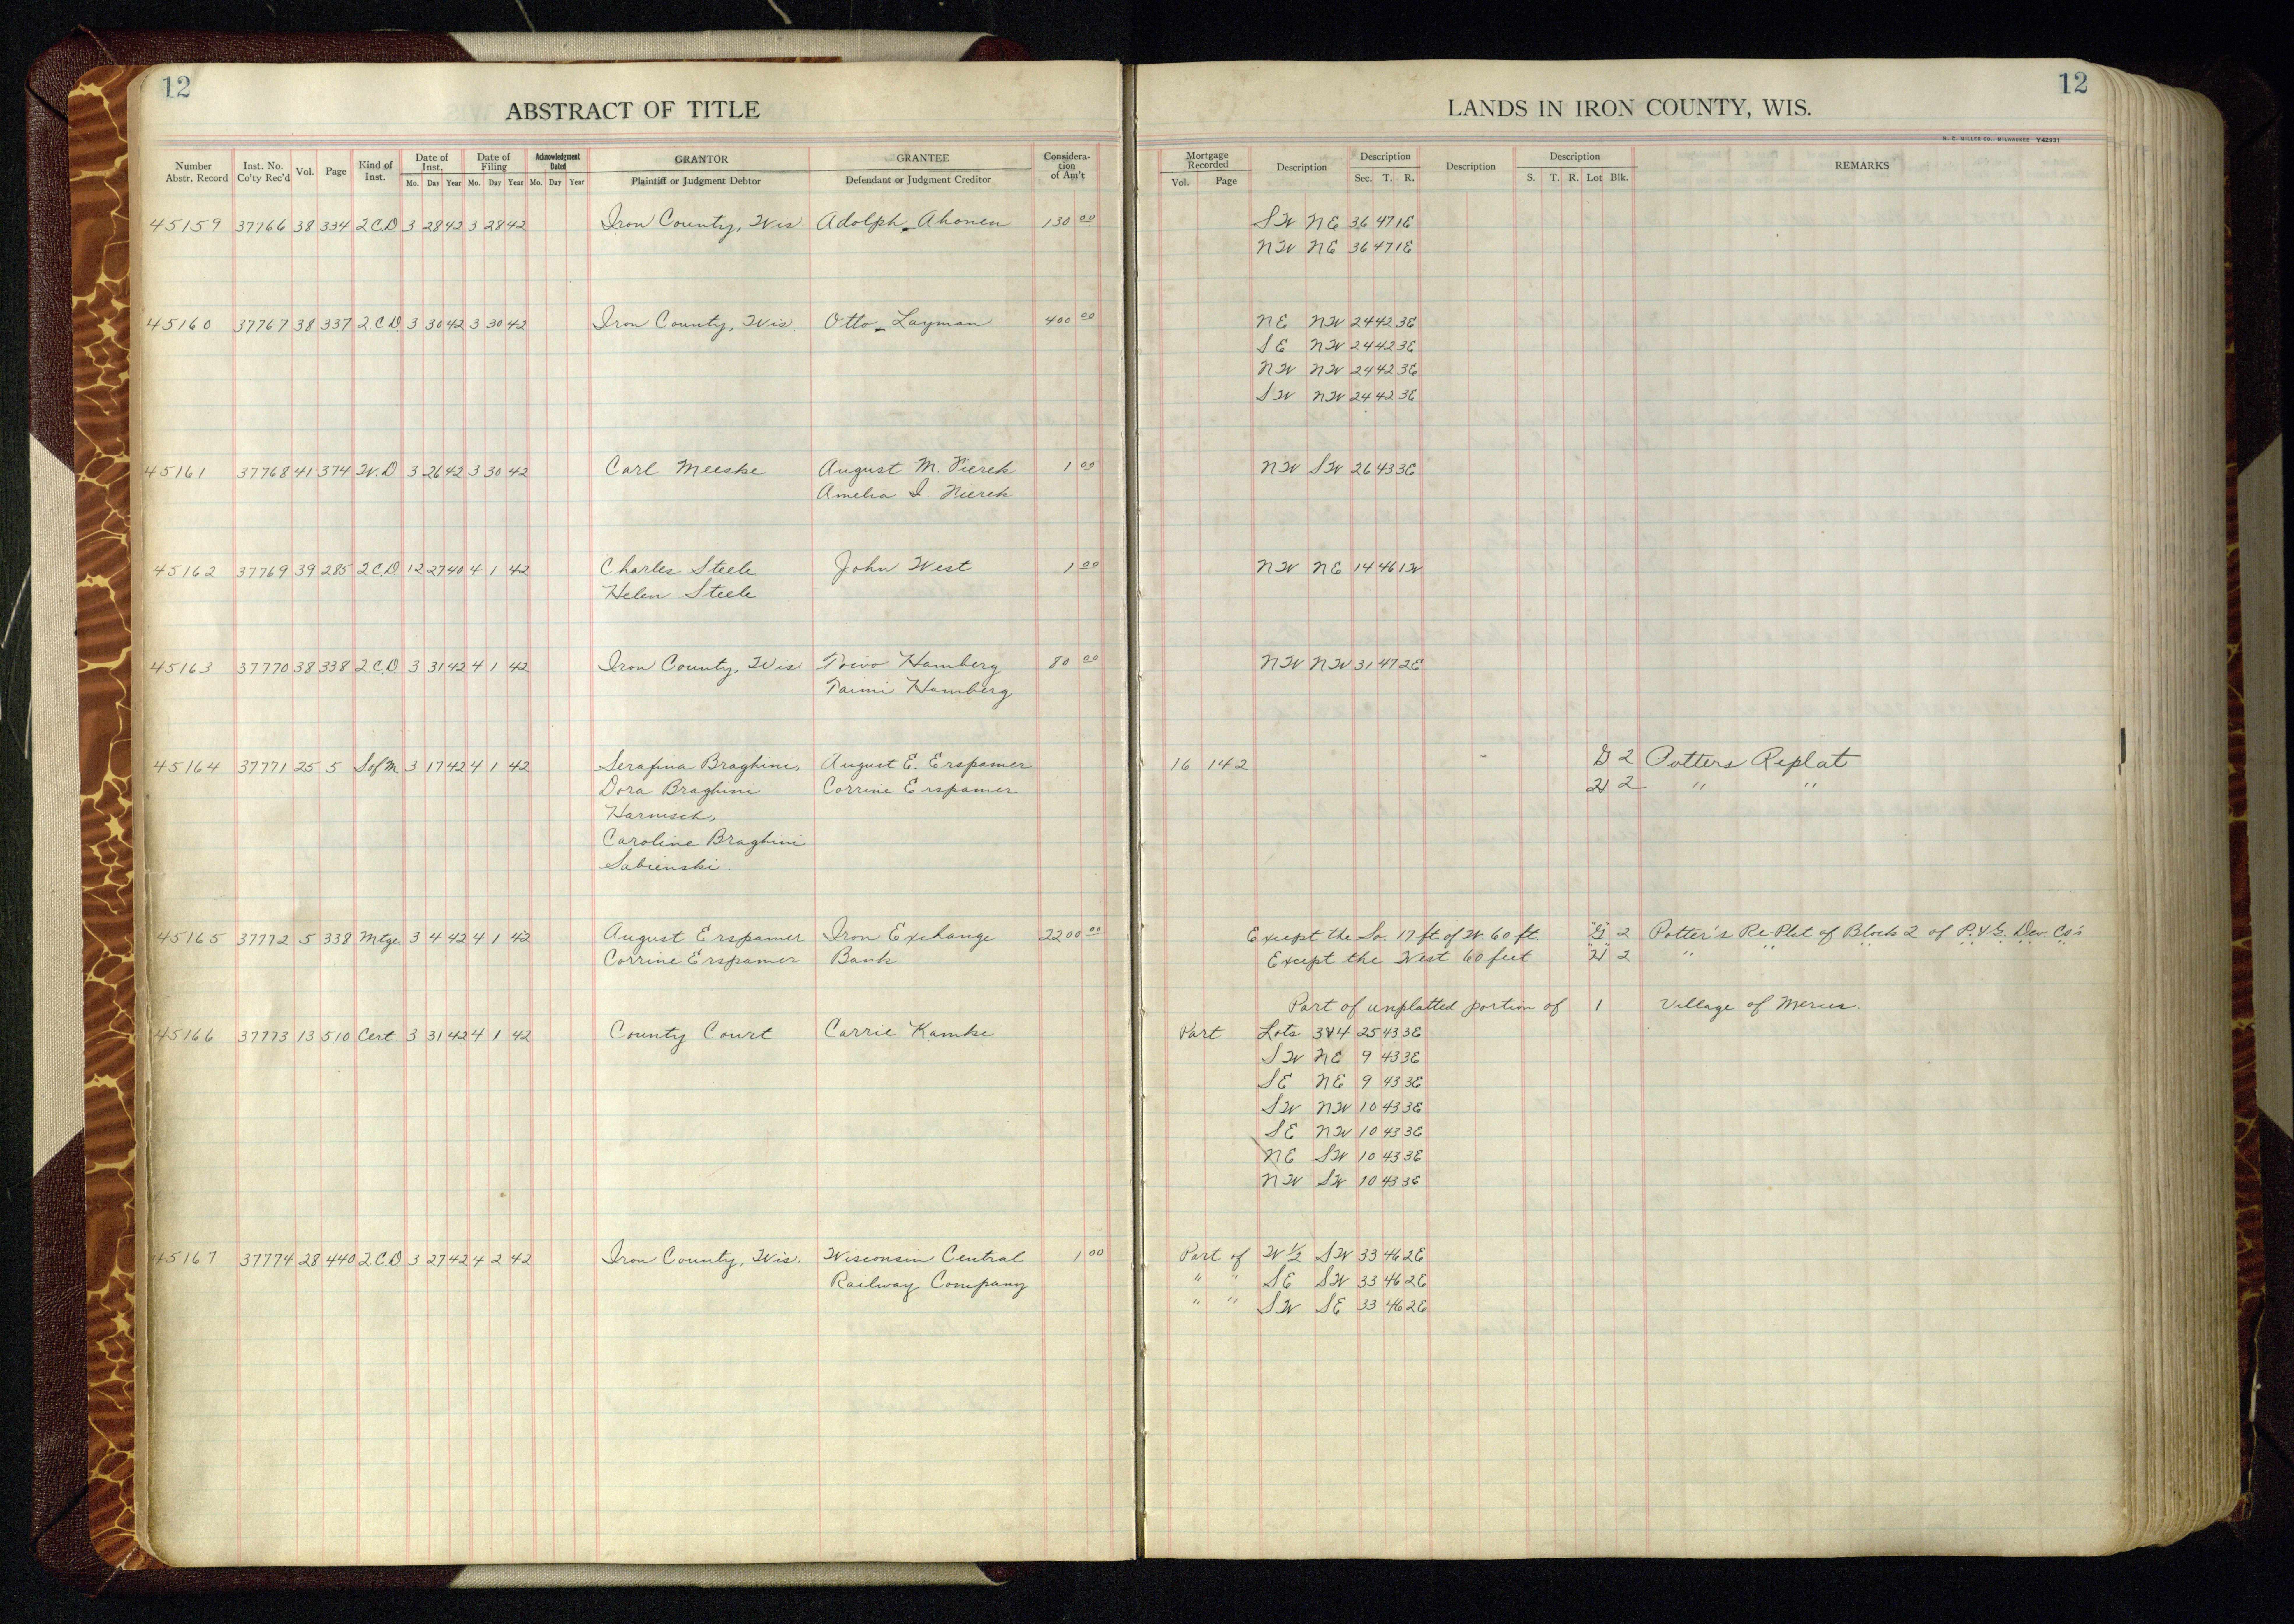 12
ABSTRACT OF TITLE
Number Abstr. Record
Inst. No. Co'ty Rec'd
Vol.
Page
Kind of Inst.
Date of Inst.
Mo. Day Year
Date of Filing
Mo. Day Year
Acknowledgment Dated
Mo. Day Year
GRANTOR
Plaintiff or Judgment Debtor
GRANTEE
Defendant or Judgment Creditor
Considera-tion of Am't
45159 37766 38 334 2.C.D 3 28 42 3 28 42 Iron County, Wis. Adolph Ahonen 130 00
45160 37767 38 337 2.C.D 3 30 42 3 30 42 Iron County, Wis. Otto Layman 400 00
45161 37768 41 374 W.D 3 26 42 3 30 42 Carl Meeske August M. Pierek 1 00
Amelia I. Pierek
45162 37769 39 285 2.C.D 12 27 40 4 1 42 Charles Steele John West 1 00
Helen Steele
45163 37770 38 338 2.C.D. 3 31 42 4 1 42 Iron County, Wis Toivo Hamberg 80 00
Taimi Hamberg
45164 37771 25 5 S of M 3 17 42 4 1 42 Serafina Braghini, August E. Erspamer
Dora Braghini Corrine Erspamer
Harnisch,
Caroline Braghini
Sabienski.
45165 37772 5 338 Mtge. 3 4 42 4 1 42 August Erspamer Iron Exchange 2200 00
Corrine Erspamer Bank
45166 37773 13 510 Cert. 3 31 42 4 1 42 County Court Carrie Kamke
45167 37774 28 440 2.C.D 3 27 42 4 2 42 Iron County, Wis. Wisconsin Central 1 00
Railway Company
12
LANDS IN IRON COUNTY, WIS.
H. C. MILLER CO., MILWAUKEE Y42931
Mortgage Recorded
Vol. Page
Description
Description
Sec. T. R.
Description
Description
S. T. R. Lot Blk.
REMARKS
SW NE 36 47 1E
NW NE 36 47 1E
NE NW 24 42 3E
SE NW 24 42 3E
NW NW 24 42 3E
SW NW 24 42 3E
NW SW 26 43 3E
NW NE 14 46 1W
NW NW 31 47 2E
16 142 G 2 Potters Replat
H 2 " "
Except the So. 17 ft. of W. 60 ft. "G" 2 Potter's Re Plat of Block 2 of P. & G. Dev. Co's
Except the West 60 feet "H" 2 " " " " " " "
Part of unplatted portion of 1 Village of Mercer.
Part Lots 3&4 25 43 3E
SW NE 9 43 3E
SE NE 9 43 3E
SW NW 10 43 3E
SE NW 10 43 3E
NE SW 10 43 3E
NW SW 10 43 3E
Part of W 1/2 SW 33 46 2E
" " SE SW 33 46 2E
" " SW SE 33 46 2E